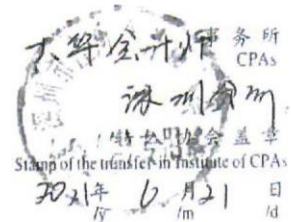 大华会计师事务所
CPAs
深圳分所
转出协会盖章
Stamp of the transfer-in Institute of CPAs
2021年 6月21日
/y /m /d